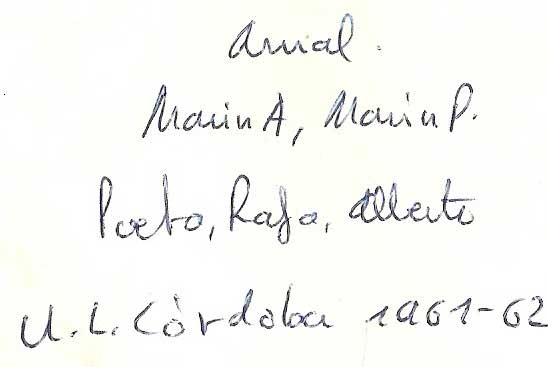 Arnal.
Marin A, Marin P.
Prieto, Rafa, Alberto
U.L. Córdoba 1961-62